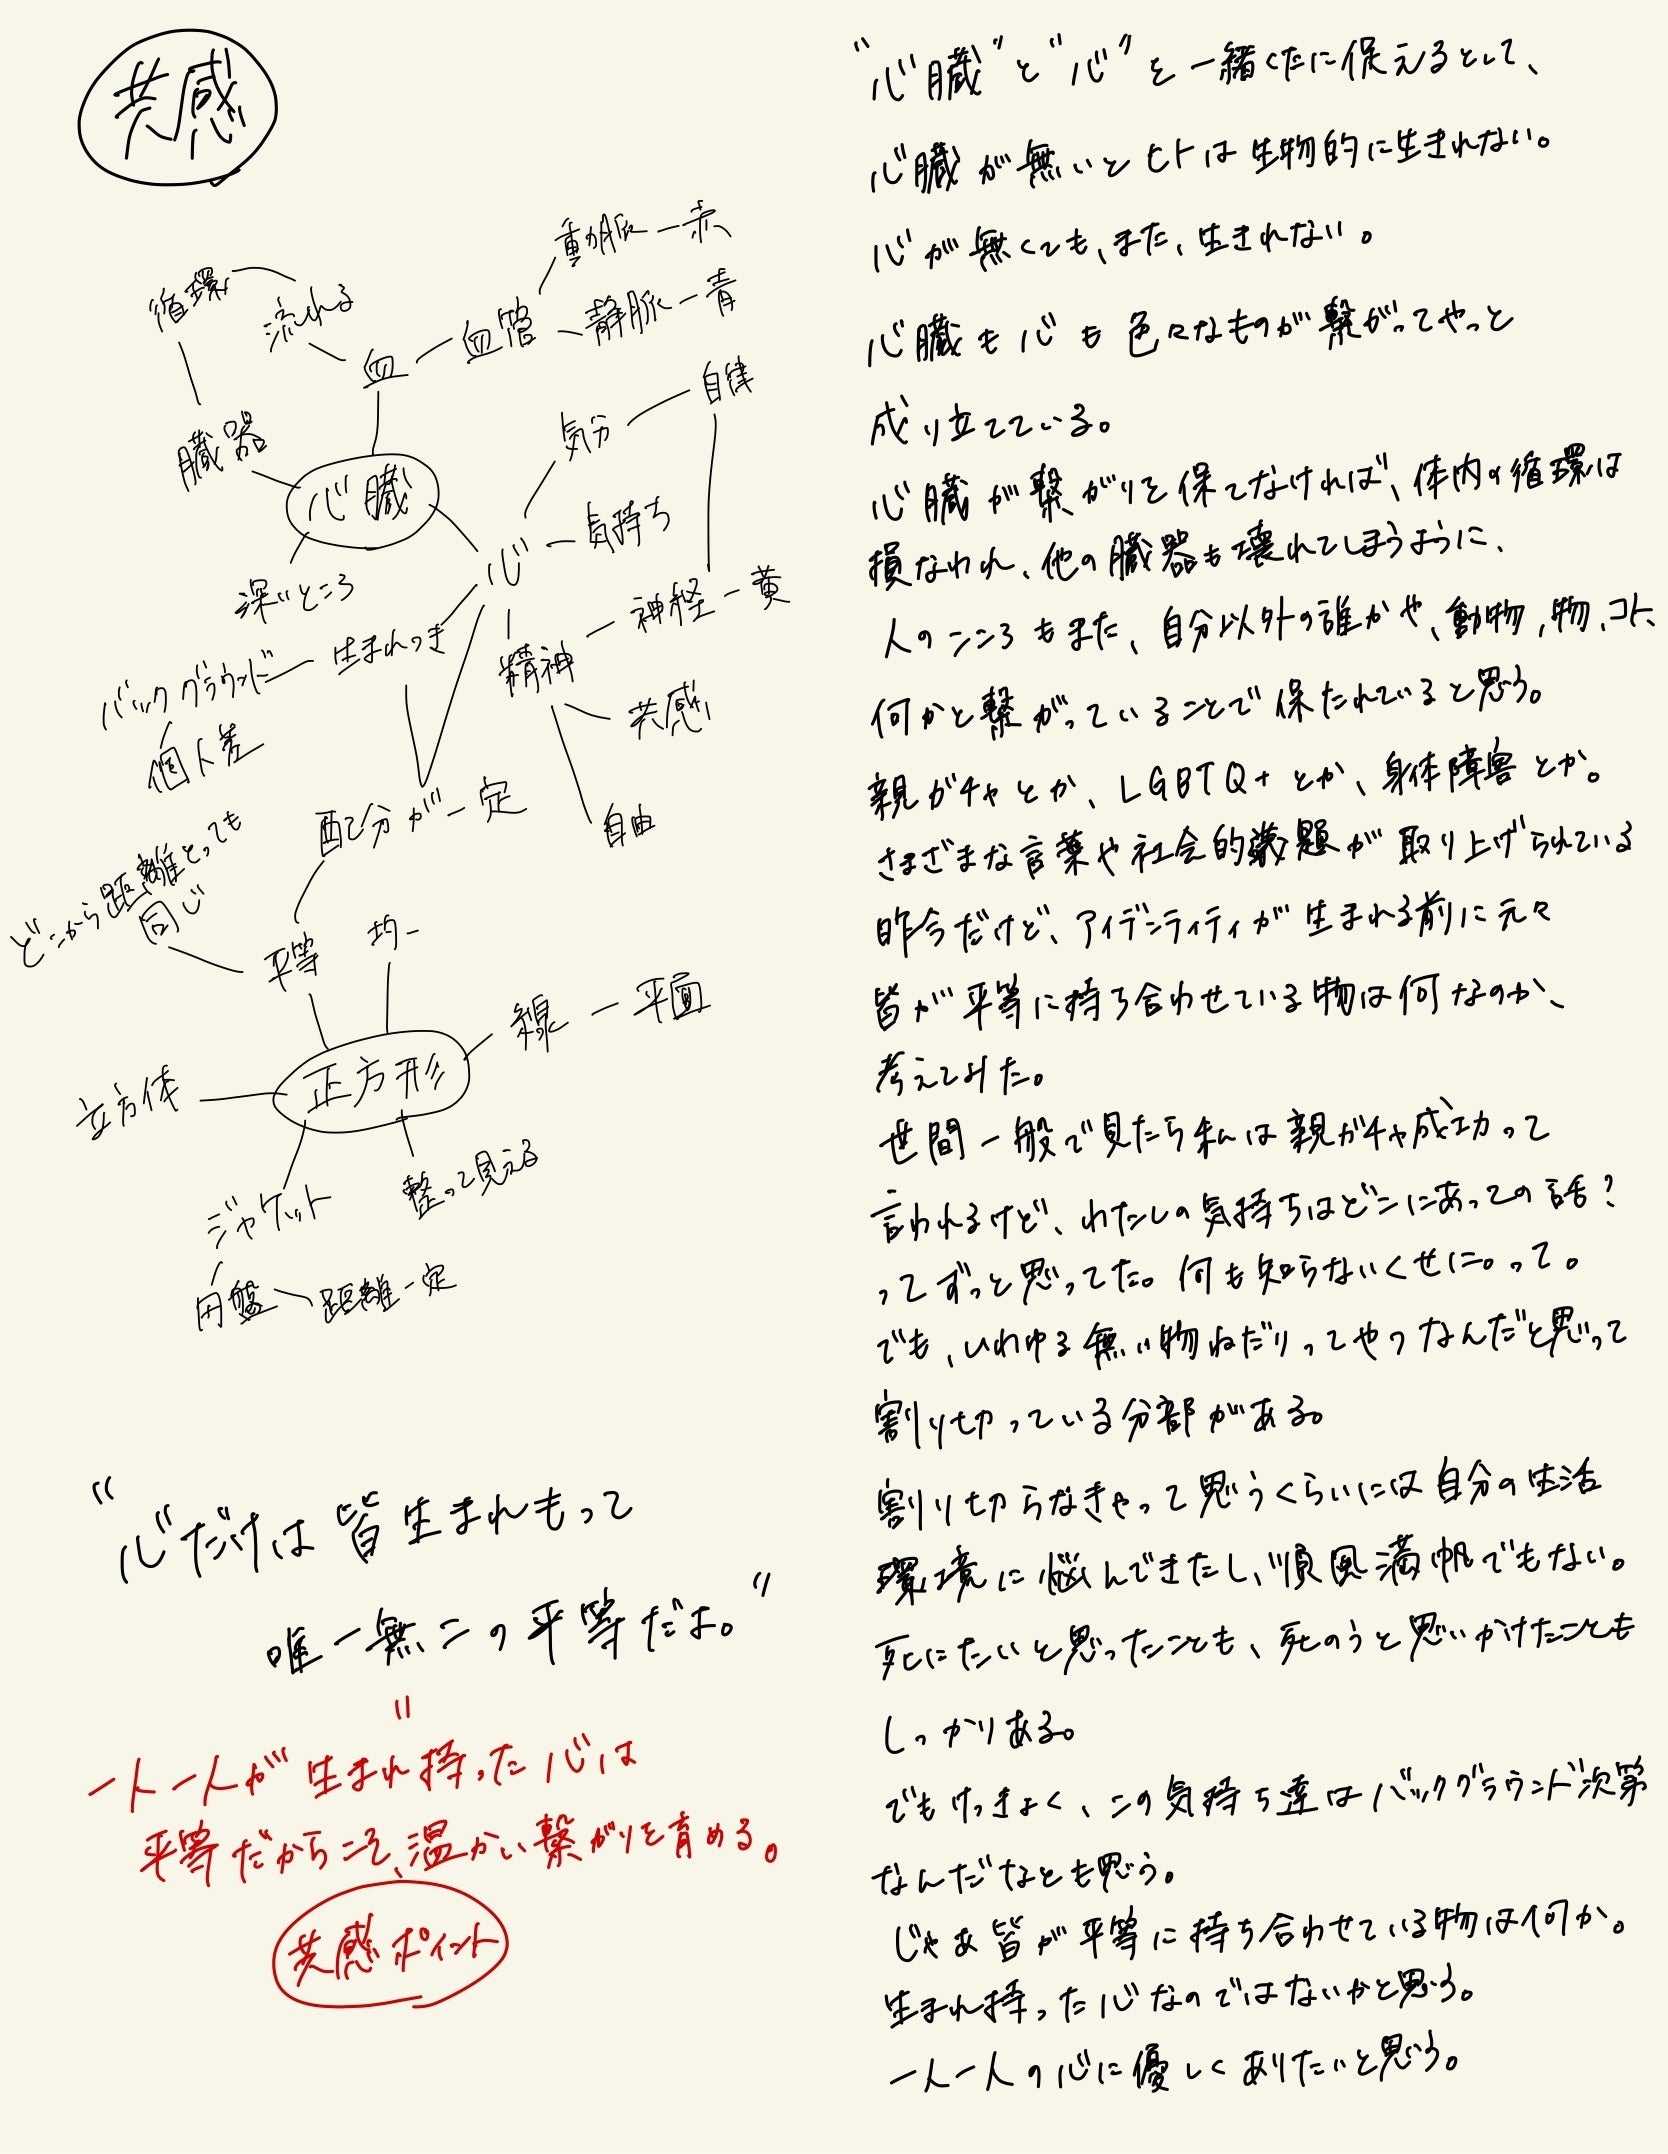 共感
動脈ー赤
循環
流れる
血
血管
静脈ー青
臓器
心臓
気分
自律
心
気持ち
深いところ
生まれつき
バックグラウンド
個人差
精神
神経ー黄
共感
自由
配分が一定
どこから距離とっても
同じ
平等
均一
線ー平面
正方形
立方体
ジャケット
整って見える
円盤
距離一定
"心だけは皆生まれもって
唯一無二の平等だよ。"
=
一人一人が生まれ持った心は
平等だからこそ、温かい繋がりを育める。
共感ポイント
"心臓"と"心"を一緒くたに捉えるとして、
心臓が無いとヒトは生物的に生きれない。
心が無くても、また、生きれない。
心臓も心も色々なものが繋がってやっと
成り立てている。
心臓が繋がりを保てなければ、体内の循環は
損なわれ、他の臓器も壊れてしまうように、
人のこころもまた、自分以外の誰かや、動物,物、コト、
何かと繋がっていることで保たれていると思う。
親ガチャとか、LGBTQ+とか、身体障害とか。
さまざまな言葉や社会的議題が取り上げられている
昨今だけど、アイデンティティが生まれる前に元々
皆が平等に持ち合わせている物は何なのか、
考えてみた。
世間一般で見たら私は親ガチャ成功って
言われるけど、わたしの気持ちはどこにあっての話？
ってずっと思ってた。何も知らないくせに。って。
でも、いわゆる無い物ねだりってやつなんだと思って
割り切っている分部がある。
割り切らなきゃって思うくらいには自分の生活
環境に悩んできたし、順風満帆でもない。
死にたいと思ったことも、死のうと思いかけたことも
しっかりある。
でもけっきょく、この気持ち達はバックグラウンド次第
なんだなとも思う。
じゃあ皆が平等に持ち合わせている物は何か。
生まれ持った心なのではないかと思う。
一人一人の心に優しくありたいと思う。